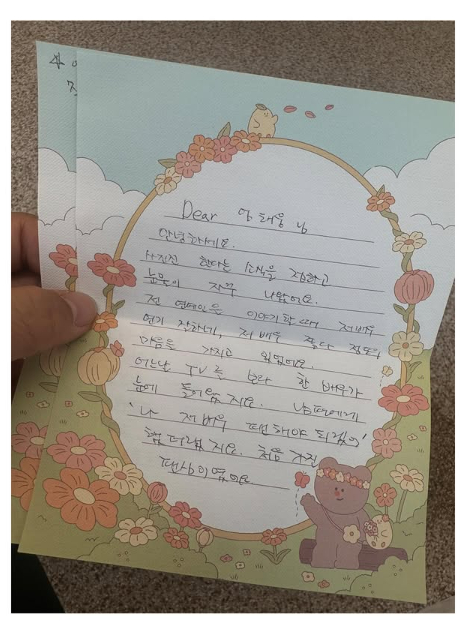 Dear 안태웅 님
안녕하세요.
사진전 한다는 소식을 접하고
눈물이 자꾸 나왔어요.
전 연예인을 이야기할 때 저 배우
연기 잘하네, 저 배우 잘다 정도의
마음을 가지고 있었어요.
어느날 TV를 보다 한 배우가
눈에 들어왔지요. 남편에게
'나 저 배우 팬해야 되겠어'
해 버렸지요. 처음 가진
팬심이였어요